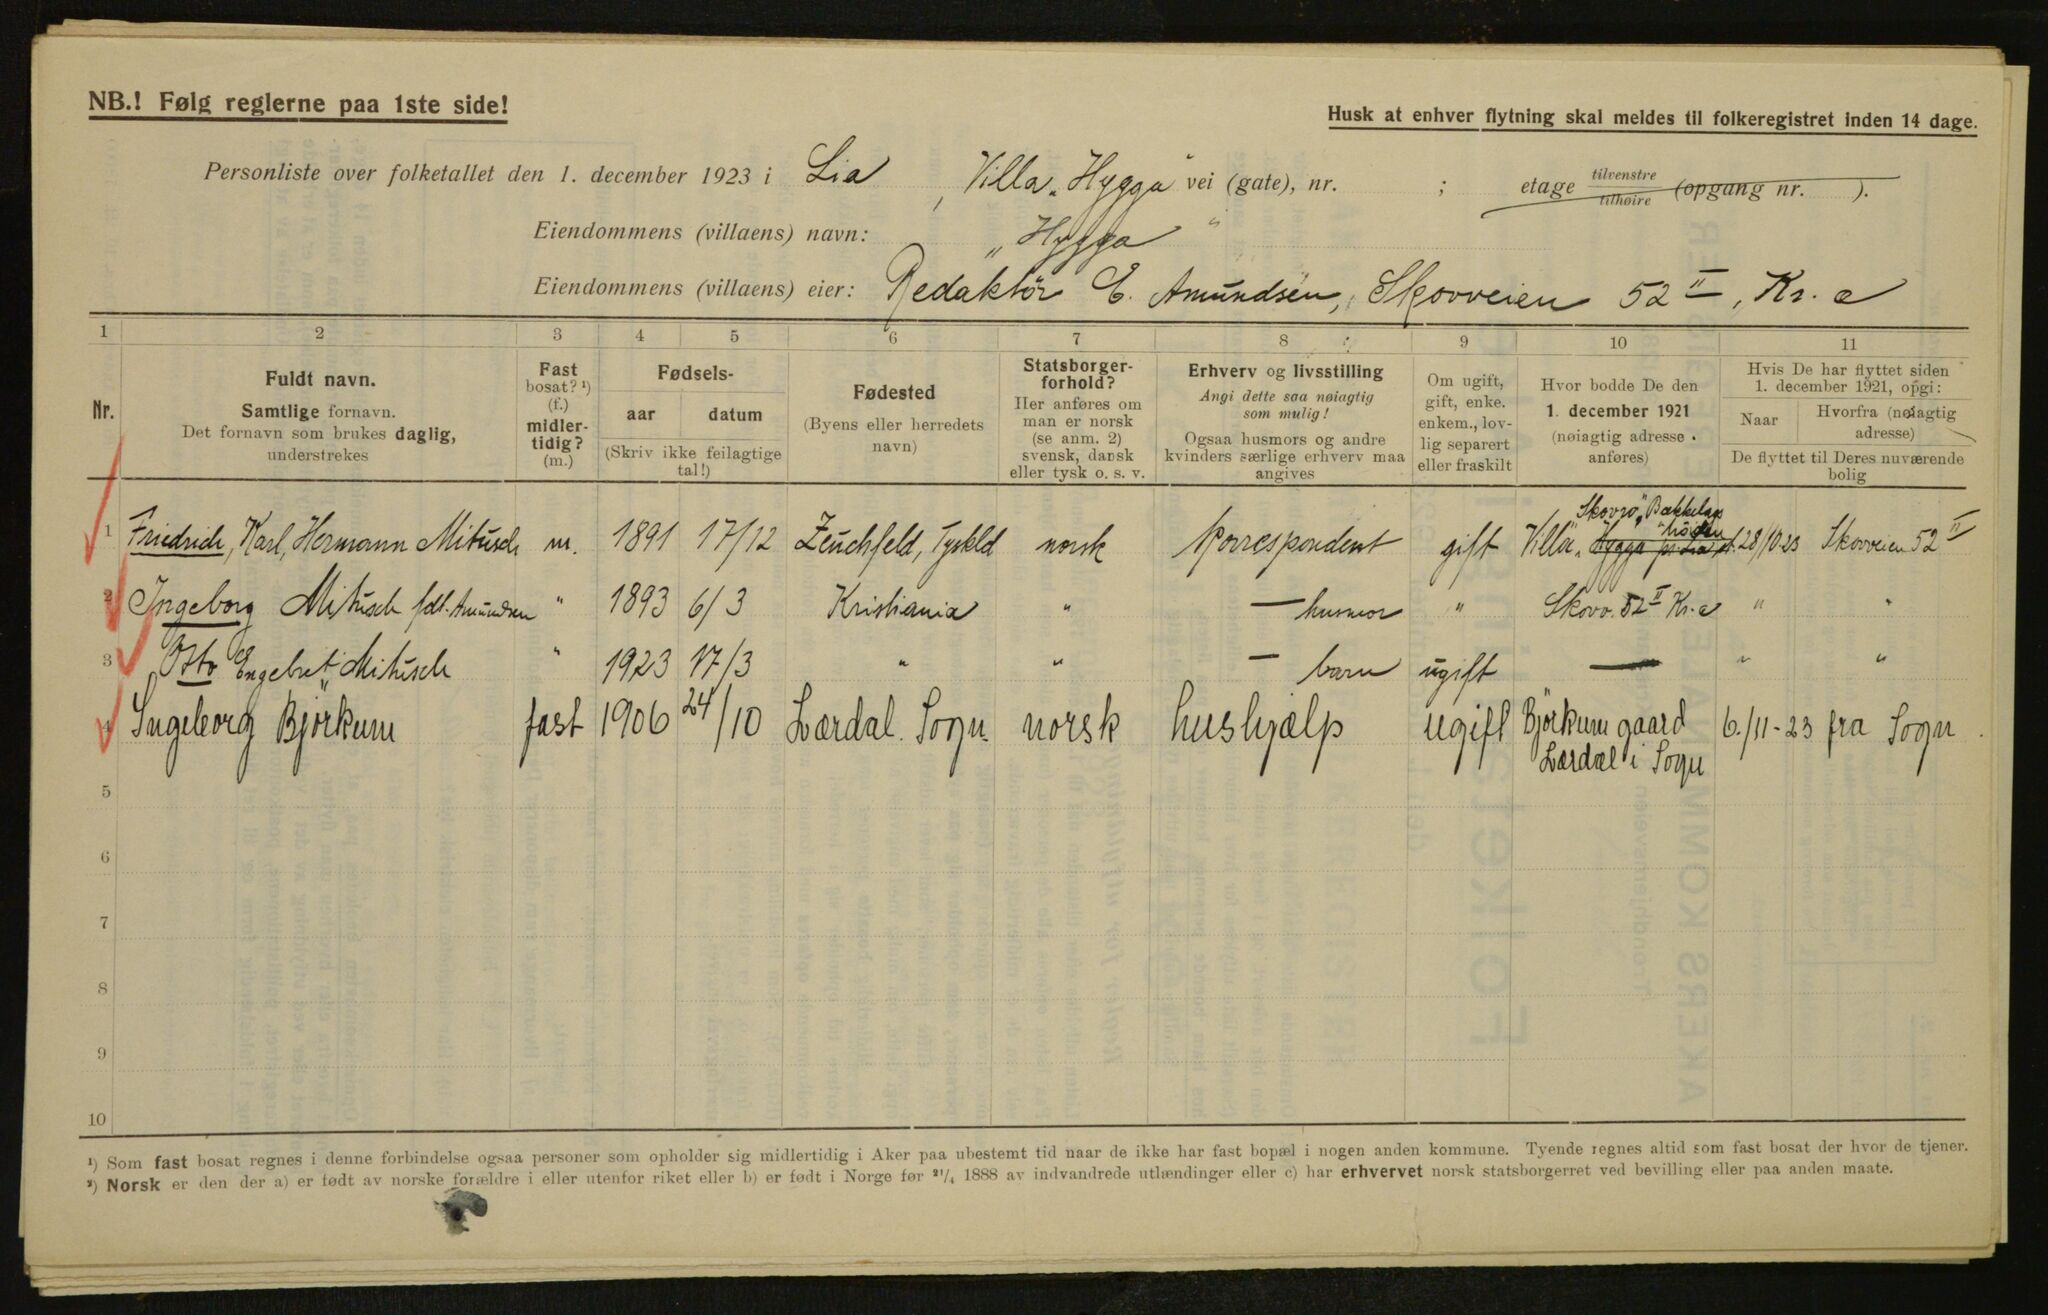 NB.! Følg reglerne paa 1ste side!
Husk at enhver flytning skal meldes til folkeregistret inden 14 dage.
Personliste over folketallet den 1. december 1923 i Lia, Villa „Hygga" vei (gate), nr. ; etage tilvenstre tilhøire (opgang nr. ).
Eiendommens (villaens) navn: „Hygga"
Eiendommens (villaens) eier: Redaktör E. Amundsen, Skovveien 52 II, Kr.a
1 2 3 4 5 6 7 8 9 10 11
Nr.
Fuldt navn.
Samtlige fornavn.
Det fornavn som brukes daglig,
understrekes
Fast
bosat? ¹)
(f.)
midler-
tidig?
(m.)
Fødsels-
aar datum
(Skriv ikke feilagtige
tal!)
Fødested
(Byens eller herredets
navn)
Statsborger-
forhold?
Her anføres om
man er norsk
(se anm. 2)
svensk, dansk
eller tysk o. s. v.
Erhverv og livsstilling
Angi dette saa nøiagtig
som mulig!
Ogsaa husmors og andre
kvinders særlige erhverv maa
angives
Om ugift,
gift, enke.
enkem., lov-
lig separert
eller fraskilt
Hvor bodde De den
1. december 1921
(nøiagtig adresse
anføres)
Hvis De har flyttet siden
1. december 1921, opgi:
Naar Hvorfra (nøiagtig
adresse)
De flyttet til Deres nuværende
bolig
Skovro", Bækkelags
höiden
1 Friedrich, Karl, Hermann Mitusch m. 1891 17/12 Zeuchfeld, Tyskld norsk Korrespondent gift Villa „Hygga 28/10-23 Skovveien 52 II
2 Ingeborg Mitusch fdt. Amundsen " 1893 6/3 Kristiania " — husmor " Skovv. 52 II Kr.a " "
3 Otto Engebret Mitusch " 1923 17/3 " " — barn ugift — " "
4 Ingeborg Björkum fast 1906 24/10 Lærdal. Sogn. norsk hushjælp ugift Björkum gaard 6./11-23 fra Sogn.
Lærdal i Sogn
5
6
7
8
9
10
¹) Som fast bosat regnes i denne forbindelse ogsaa personer som opholder sig midlertidig i Aker paa ubestemt tid naar de ikke har fast bopæl i nogen anden kommune. Tyende regnes altid som fast bosat der hvor de tjener.
²) Norsk er den der a) er født av norske forældre i eller utenfor riket eller b) er født i Norge før 21/4 1888 av indvandrede utlændinger eller c) har erhvervet norsk statsborgerret ved bevilling eller paa anden maate.